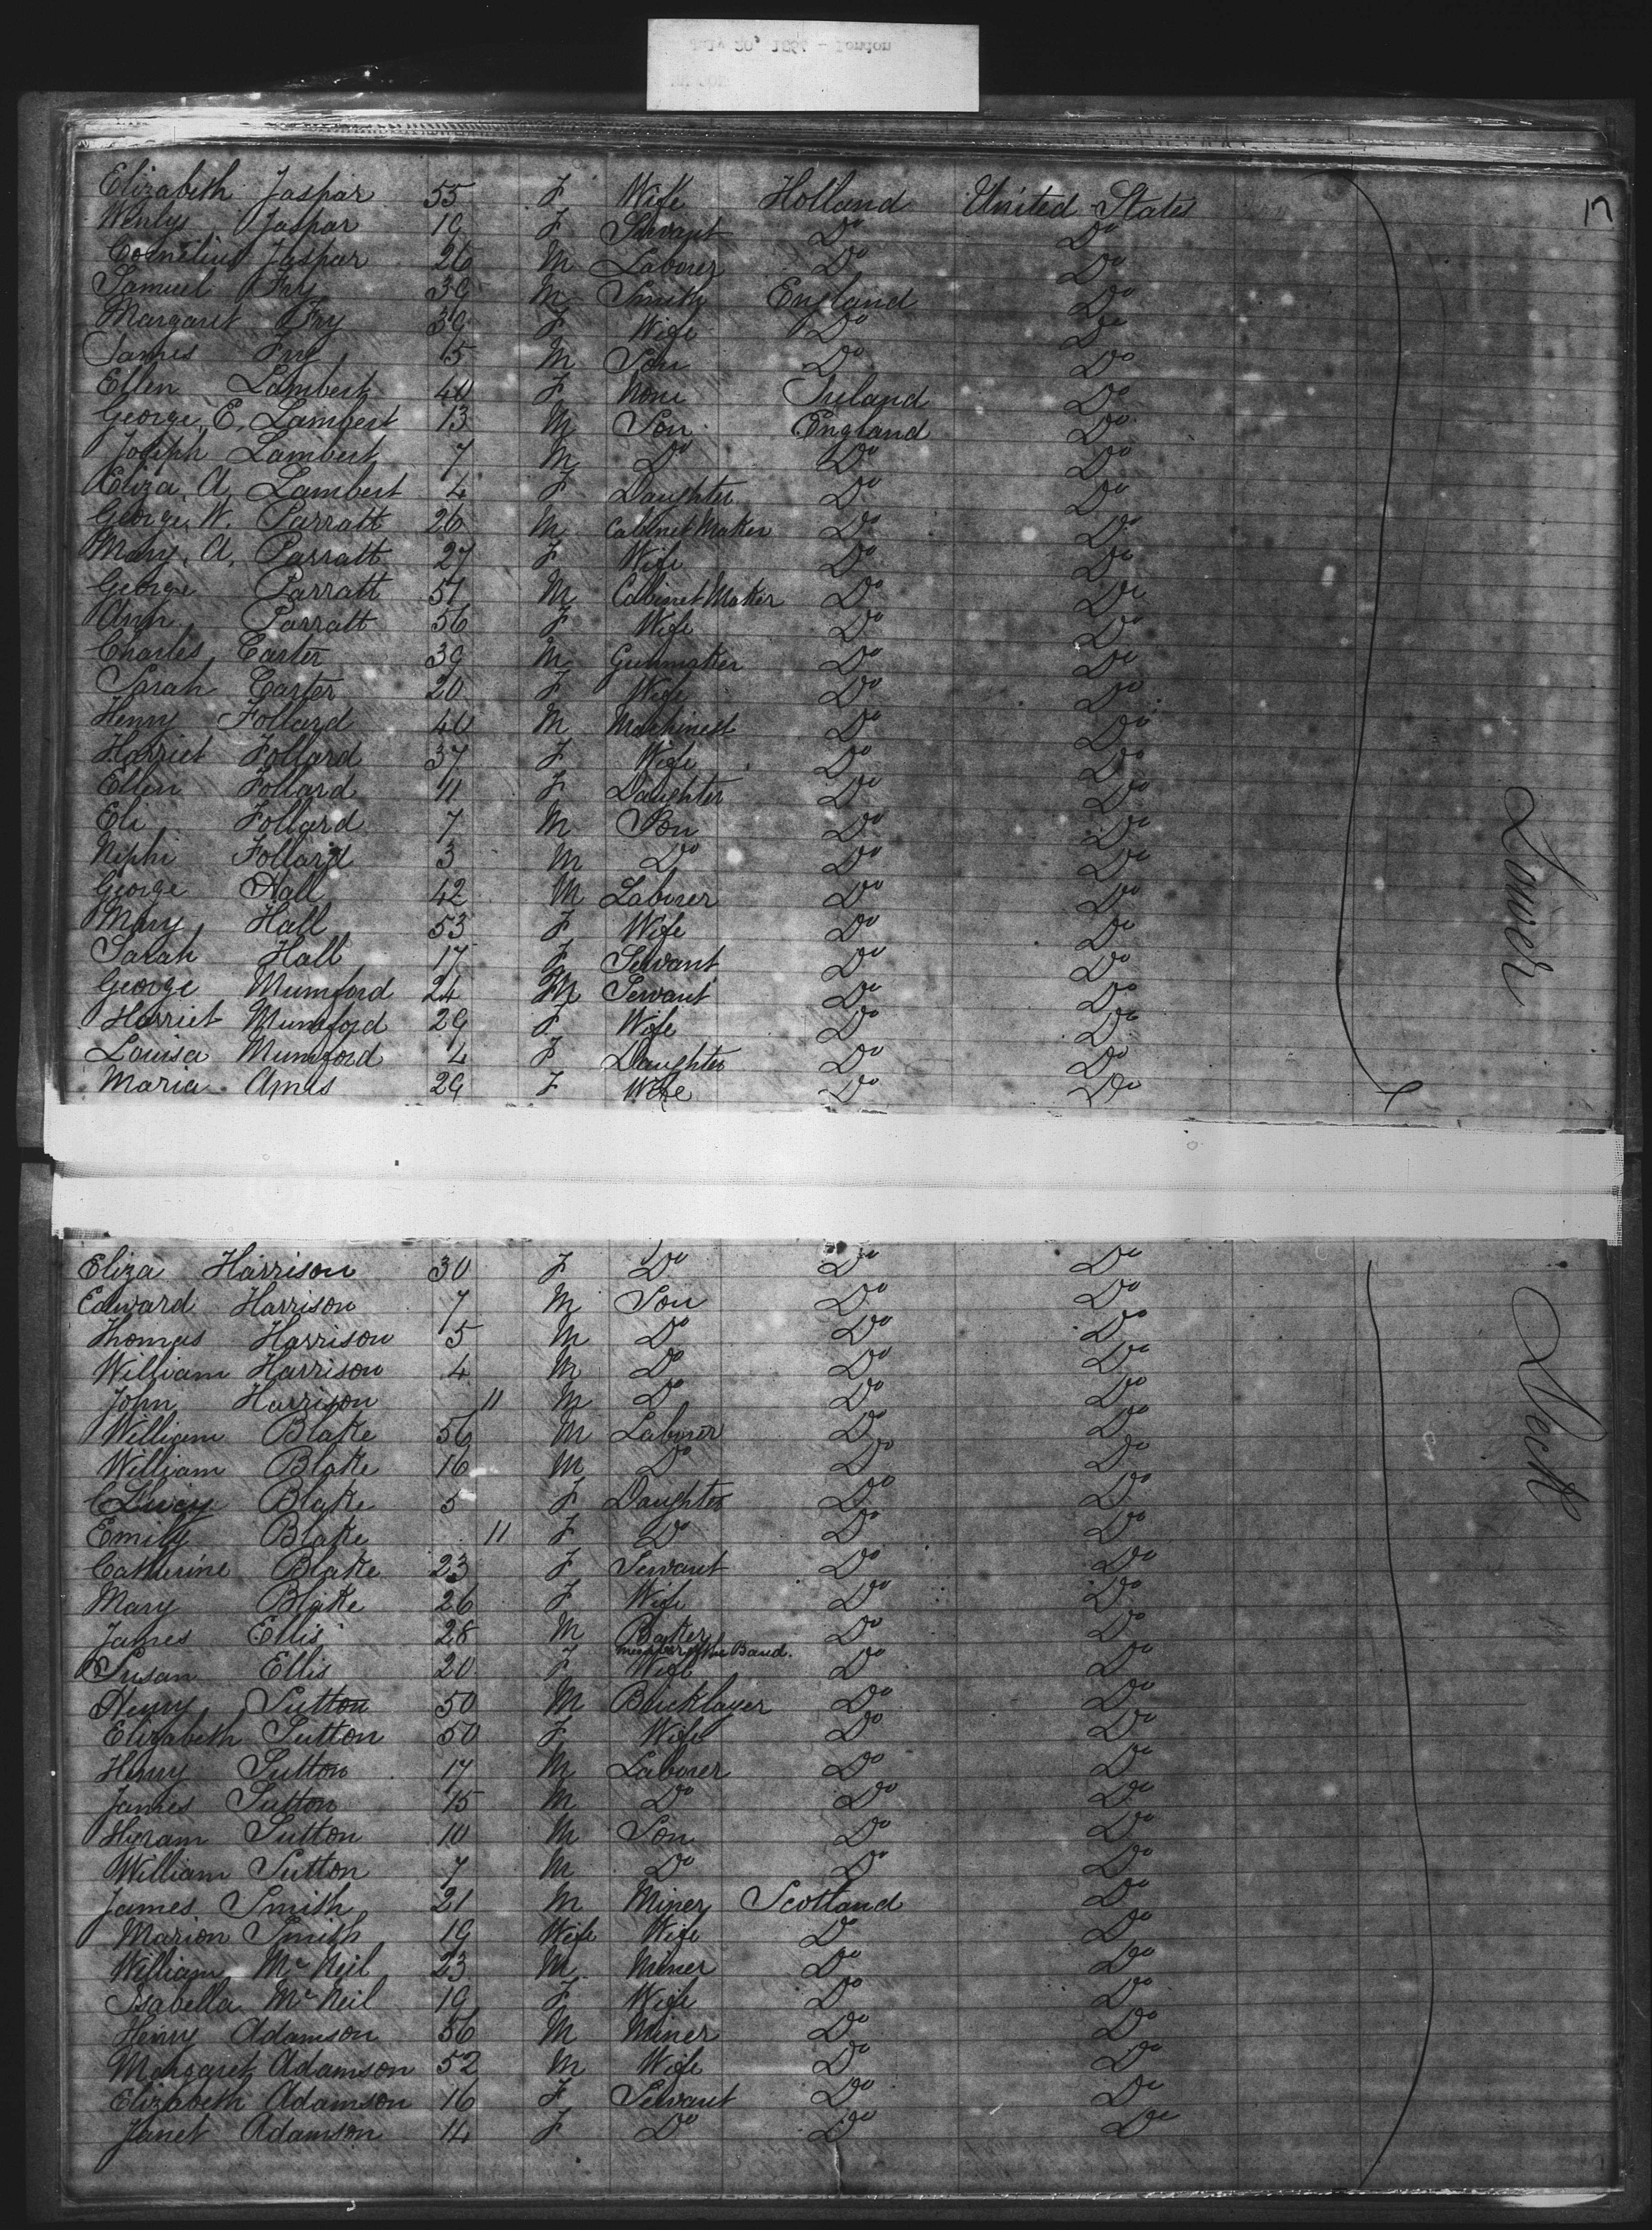 17
Elizabeth Jaspar 55 F Wife Holland United States
Wenly Jaspar 19 F Servant Do Do
Cornelius Jaspar 26 M Laborer Do Do
Samuel Fry 39 M Smith England Do
Margaret Fry 39 F Wife Do Do
James Fry 15 M Son Do Do
Ellen Lambert 40 F None Ireland Do
George E. Lambert 13 M Son England Do
Joseph Lambert 7 M Do Do Do
Eliza A. Lambert 4 F Daughter Do Do
George W. Parratt 26 M Cabinet Maker Do Do
Mary A. Parratt 27 F Wife Do Do
George Parratt 57 M Cabinet Maker Do Do
Ann Parratt 56 F Wife Do Do
Charles Carter 39 M Gunmaker Do Do
Sarah Carter 20 F Wife Do Do
Henry Follard 40 M Machinest Do Do
Harriet Follard 37 F Wife Do Do
Ellen Follard 11 F Daughter Do Do
Eli Follard 7 M Son Do Do
Niphi Follard 3 M Do Do Do
George Hall 42 M Laborer Do Do
Mary Hall 53 F Wife Do Do
Sarah Hall 17 F Servant Do Do
George Mumford 24 M Servant Do Do
Harriet Mumford 29 F Wife Do Do
Louisa Mumford 4 F Daughter Do Do
Maria Ames 29 F Wife Do Do
Lower
Eliza Harrison 30 F Do Do Do
Edward Harrison 7 M Son Do Do
Thomas Harrison 5 M Do Do Do
William Harrison 4 M Do Do Do
John Harrison 11 M Do Do Do
William Blake 56 M Laborer Do Do
William Blake 16 M Do Do Do
Blake 5 F Daughter Do Do
Emily Blake 11 F Do Do Do
Catherine Blake 23 F Servant Do Do
Mary Blake 26 F Wife Do Do
James Ellis 28 M Baker Do Do
member of the Band.
Susan Ellis 20 F Wife Do Do
Henry Sutton 50 M Bricklayer Do Do
Elizabeth Sutton 50 F Wife Do Do
Henry Sutton 17 M Laborer Do Do
James Sutton 15 M Do Do Do
Hiram Sutton 10 M Son Do Do
William Sutton 7 M Do Do Do
James Smith 21 M Miner Scotland Do
Marion Smith 19 Wife Wife Do Do
William McNeil 23 M Miner Do Do
Isabella McNeil 19 F Wife Do Do
Henry Adamson 56 M Miner Do Do
Margaret Adamson 52 M Wife Do Do
Elizabeth Adamson 16 F Servant Do Do
Janet Adamson 14 F Do Do Do
Deck